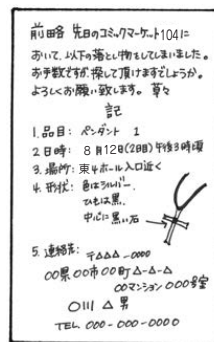 前略 先日のコミックマーケット104に
おいて、以下の落とし物をしてしまいました。
お手数ですが、探して頂けますでしょうか。
よろしくお願い致します。 草々
記
1. 品目: ペンダント 1
2. 日時: 8月12日(2日目)午後3時頃
3. 場所: 東4ホール入口近く
4. 形状: 色はシルバー。
ひもは黒。
中心に黒い石
5. 連絡先: 〒△△△-0000
〇〇県〇〇市〇〇町△-△-△
〇〇マンション000号室
〇川 △男
TEL. 000-000-0000